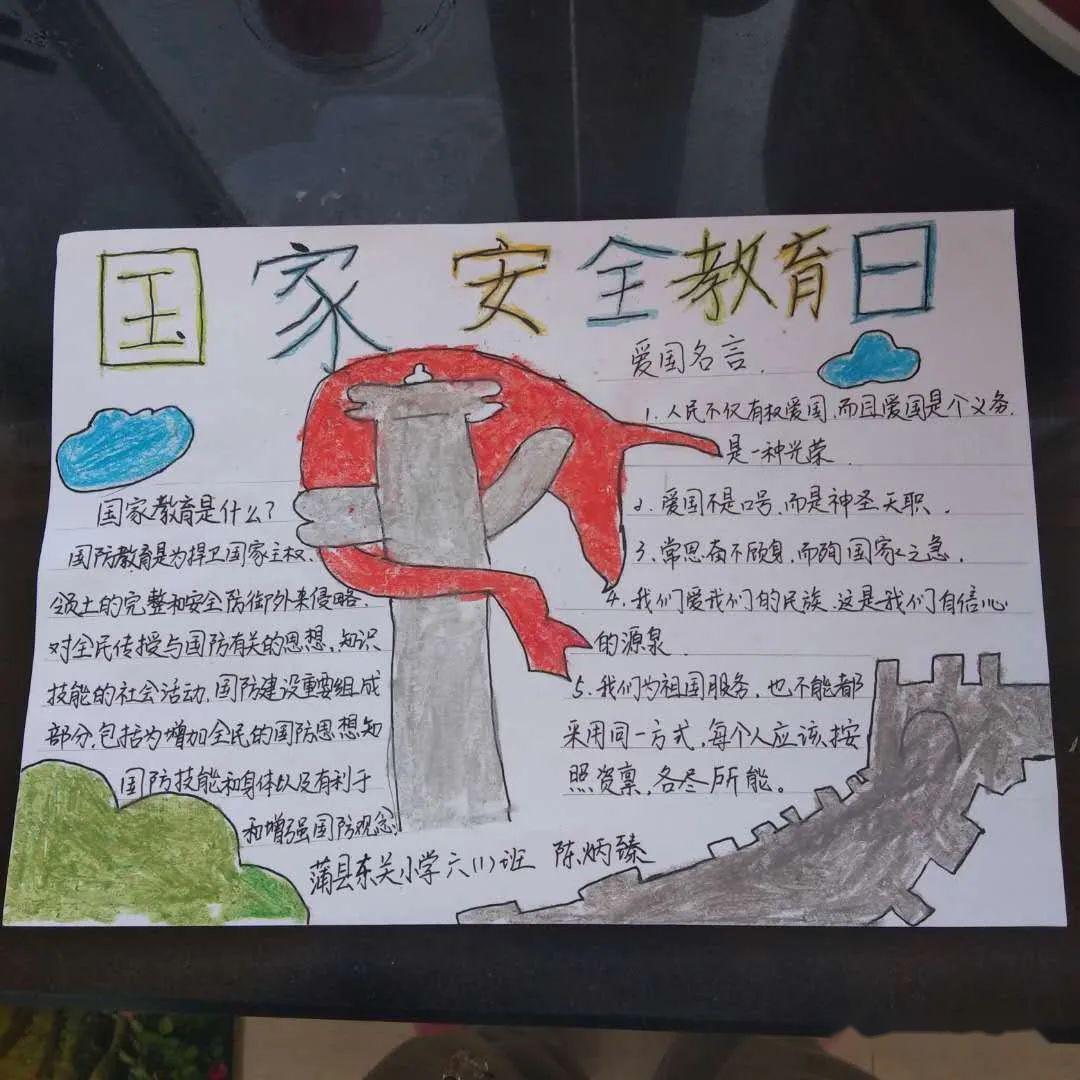 国家安全教育日
国家教育是什么?
国防教育是为捍卫国家主权、
领土的完整和安全防御外来侵略、
对全民传授与国防有关的思想,知识
技能的社会活动,国防建设重要组成
部分,包括为增加全民的国防思想知
国防技能和身体以及有利于
和增强国防观念;
爱国名言.
1. 人民不仅有权爱国,而且爱国是个义务,
是一种光荣.
2. 爱国不是口号,而是神圣天职.
3. 常思奋不顾身,而殉国家之急.
4. 我们爱我们的民族,这是我们自信心
的源泉
5. 我们为祖国服务,也不能都
采用同一方式,每个人应该按
照资禀,各尽所能。
蒲县东关小学六(1)班 陈炳臻